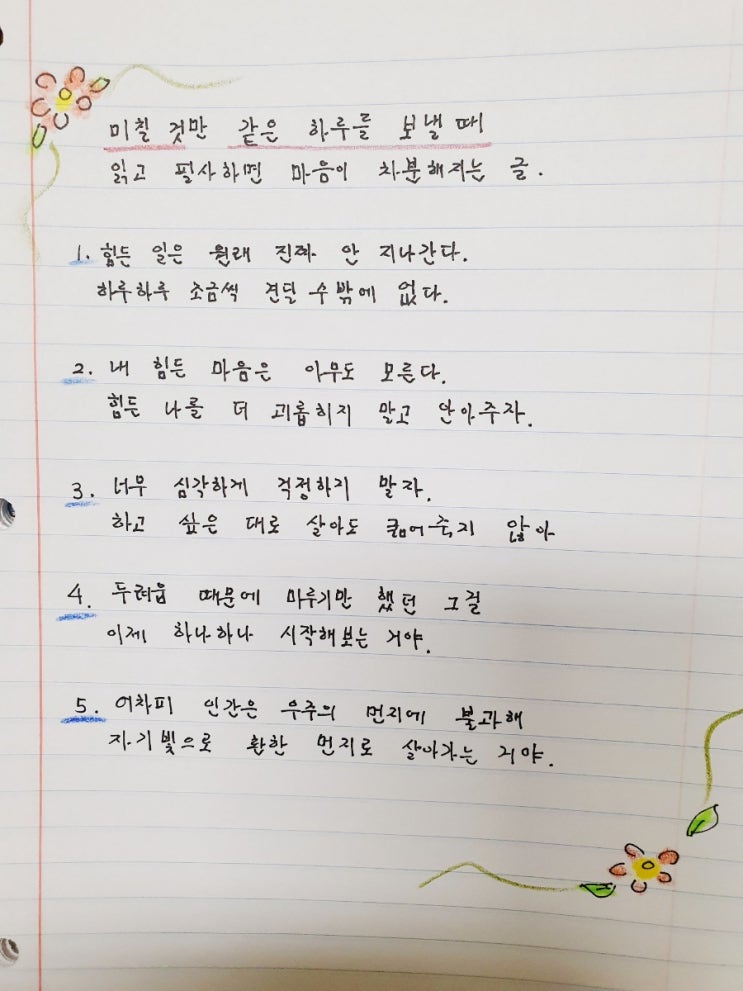 미칠 것만 같은 하루를 보낼 때
읽고 필사하면 마음이 차분해지는 글.
1. 힘든 일은 원래 진짜 안 지나간다.
하루하루 조금씩 견딜 수밖에 없다.
2. 내 힘든 마음은 아무도 모른다.
힘든 나를 더 괴롭히지 말고 안아주자.
3. 너무 심각하게 걱정하지 말자.
하고 싶은 대로 살아도 굶어죽지 않아
4. 두려움 때문에 마루기만 했던 그걸
이제 하나하나 시작해보는 거야.
5. 어차피 인간은 우주의 먼지에 불과해
자기빛으로 환한 먼지로 살아가는 거야.